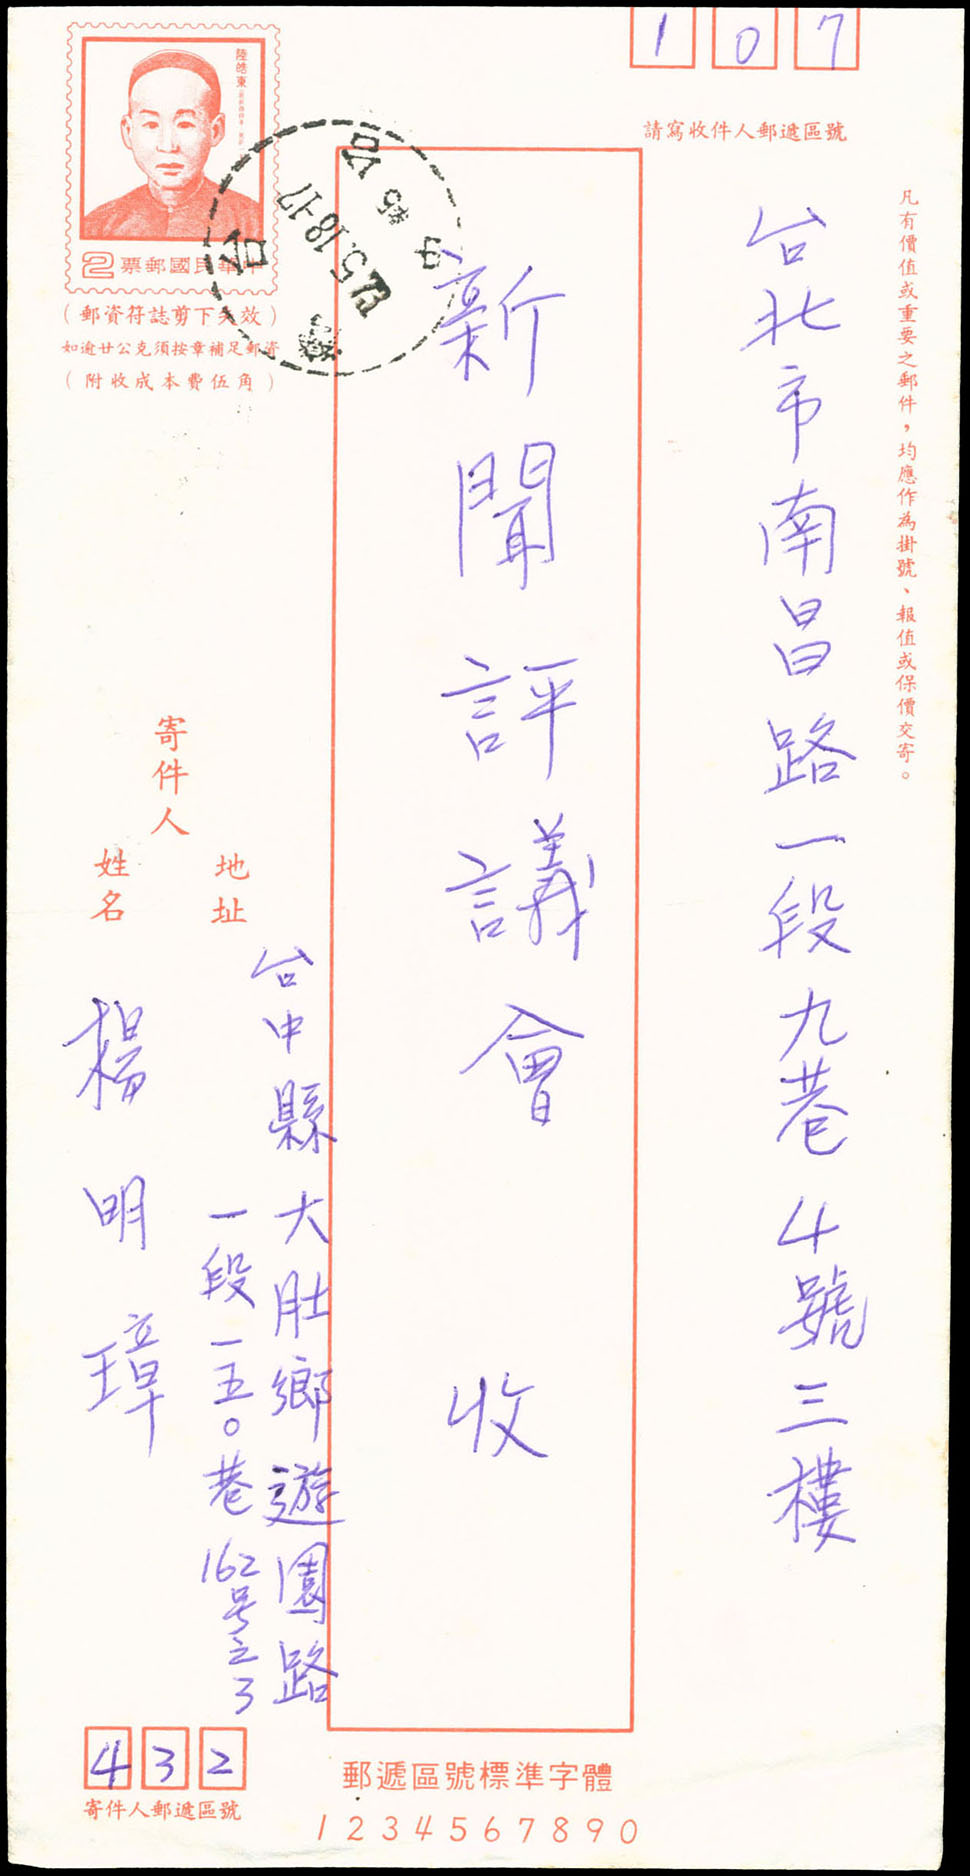 107
請寫收件人郵遞區號
凡有價值或重要之郵件，均應作為掛號、報值或保價交寄。
台北市南昌路一段九巷4號三樓
新聞評議會 收
陸皓東
2 票郵國民華中
(郵資符誌剪下失效)
如逾廿公克須按章補足郵資
(附收成本費伍角)
寄件人
地址
台中縣大肚鄉遊園路
一段一五〇巷162号之3
姓名
楊明璋
432
寄件人郵遞區號
郵遞區號標準字體
1234567890